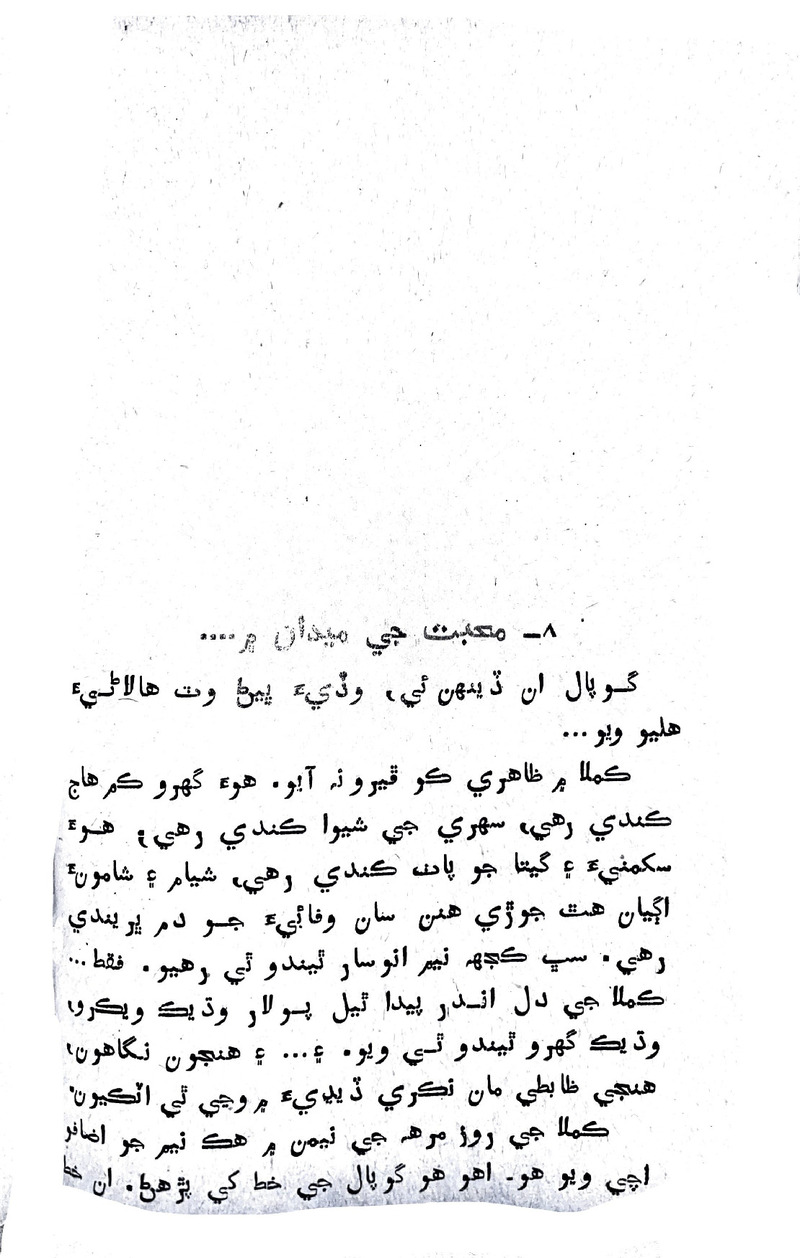 ۸ــ محبت جي ميدان ۾....
گـوپال ان ڏينهن ئي، وڏيءَ ڀيڻ وٽ هالاڻـيءَ
هليو ويو...
ڪملا ۾ ظاهري ڪو ڦيرو نہ آيو. هوءَ گھرو ڪم ڪاج
ڪندي رهي، سهري جي شيوا ڪندي رهي؛ هـوءَ
سکمنيءَ ۽ گيتا جو پاٺ ڪندي رهي، شيام ۽ شامونءَ
اڳيان هٿ جوڙي هنن سان وفائيءَ جـو دم ڀريندي
رهي. سڀ ڪجھہ نيم انوسار ٿيندو ٿي رهيو. فقط...
ڪملا جي دل انـدر پيدا ٿيل پـولار وڌيڪ ويڪرو،
وڌيڪ گھرو ٿيندو ٿـي ويو. ۽... ۽ هنجون نـگاهون،
هنجي ظابطي مان نڪري ڏيڍيءَ ۾ وڃي ٿي اٽڪيون.
ڪملا جي روز مرھہ جي نيمن ۾ هڪ نيم جو اضافو
اچي ويو هو۔ اهو هو گوپال جي خط کي پڙهڻ. ان خط